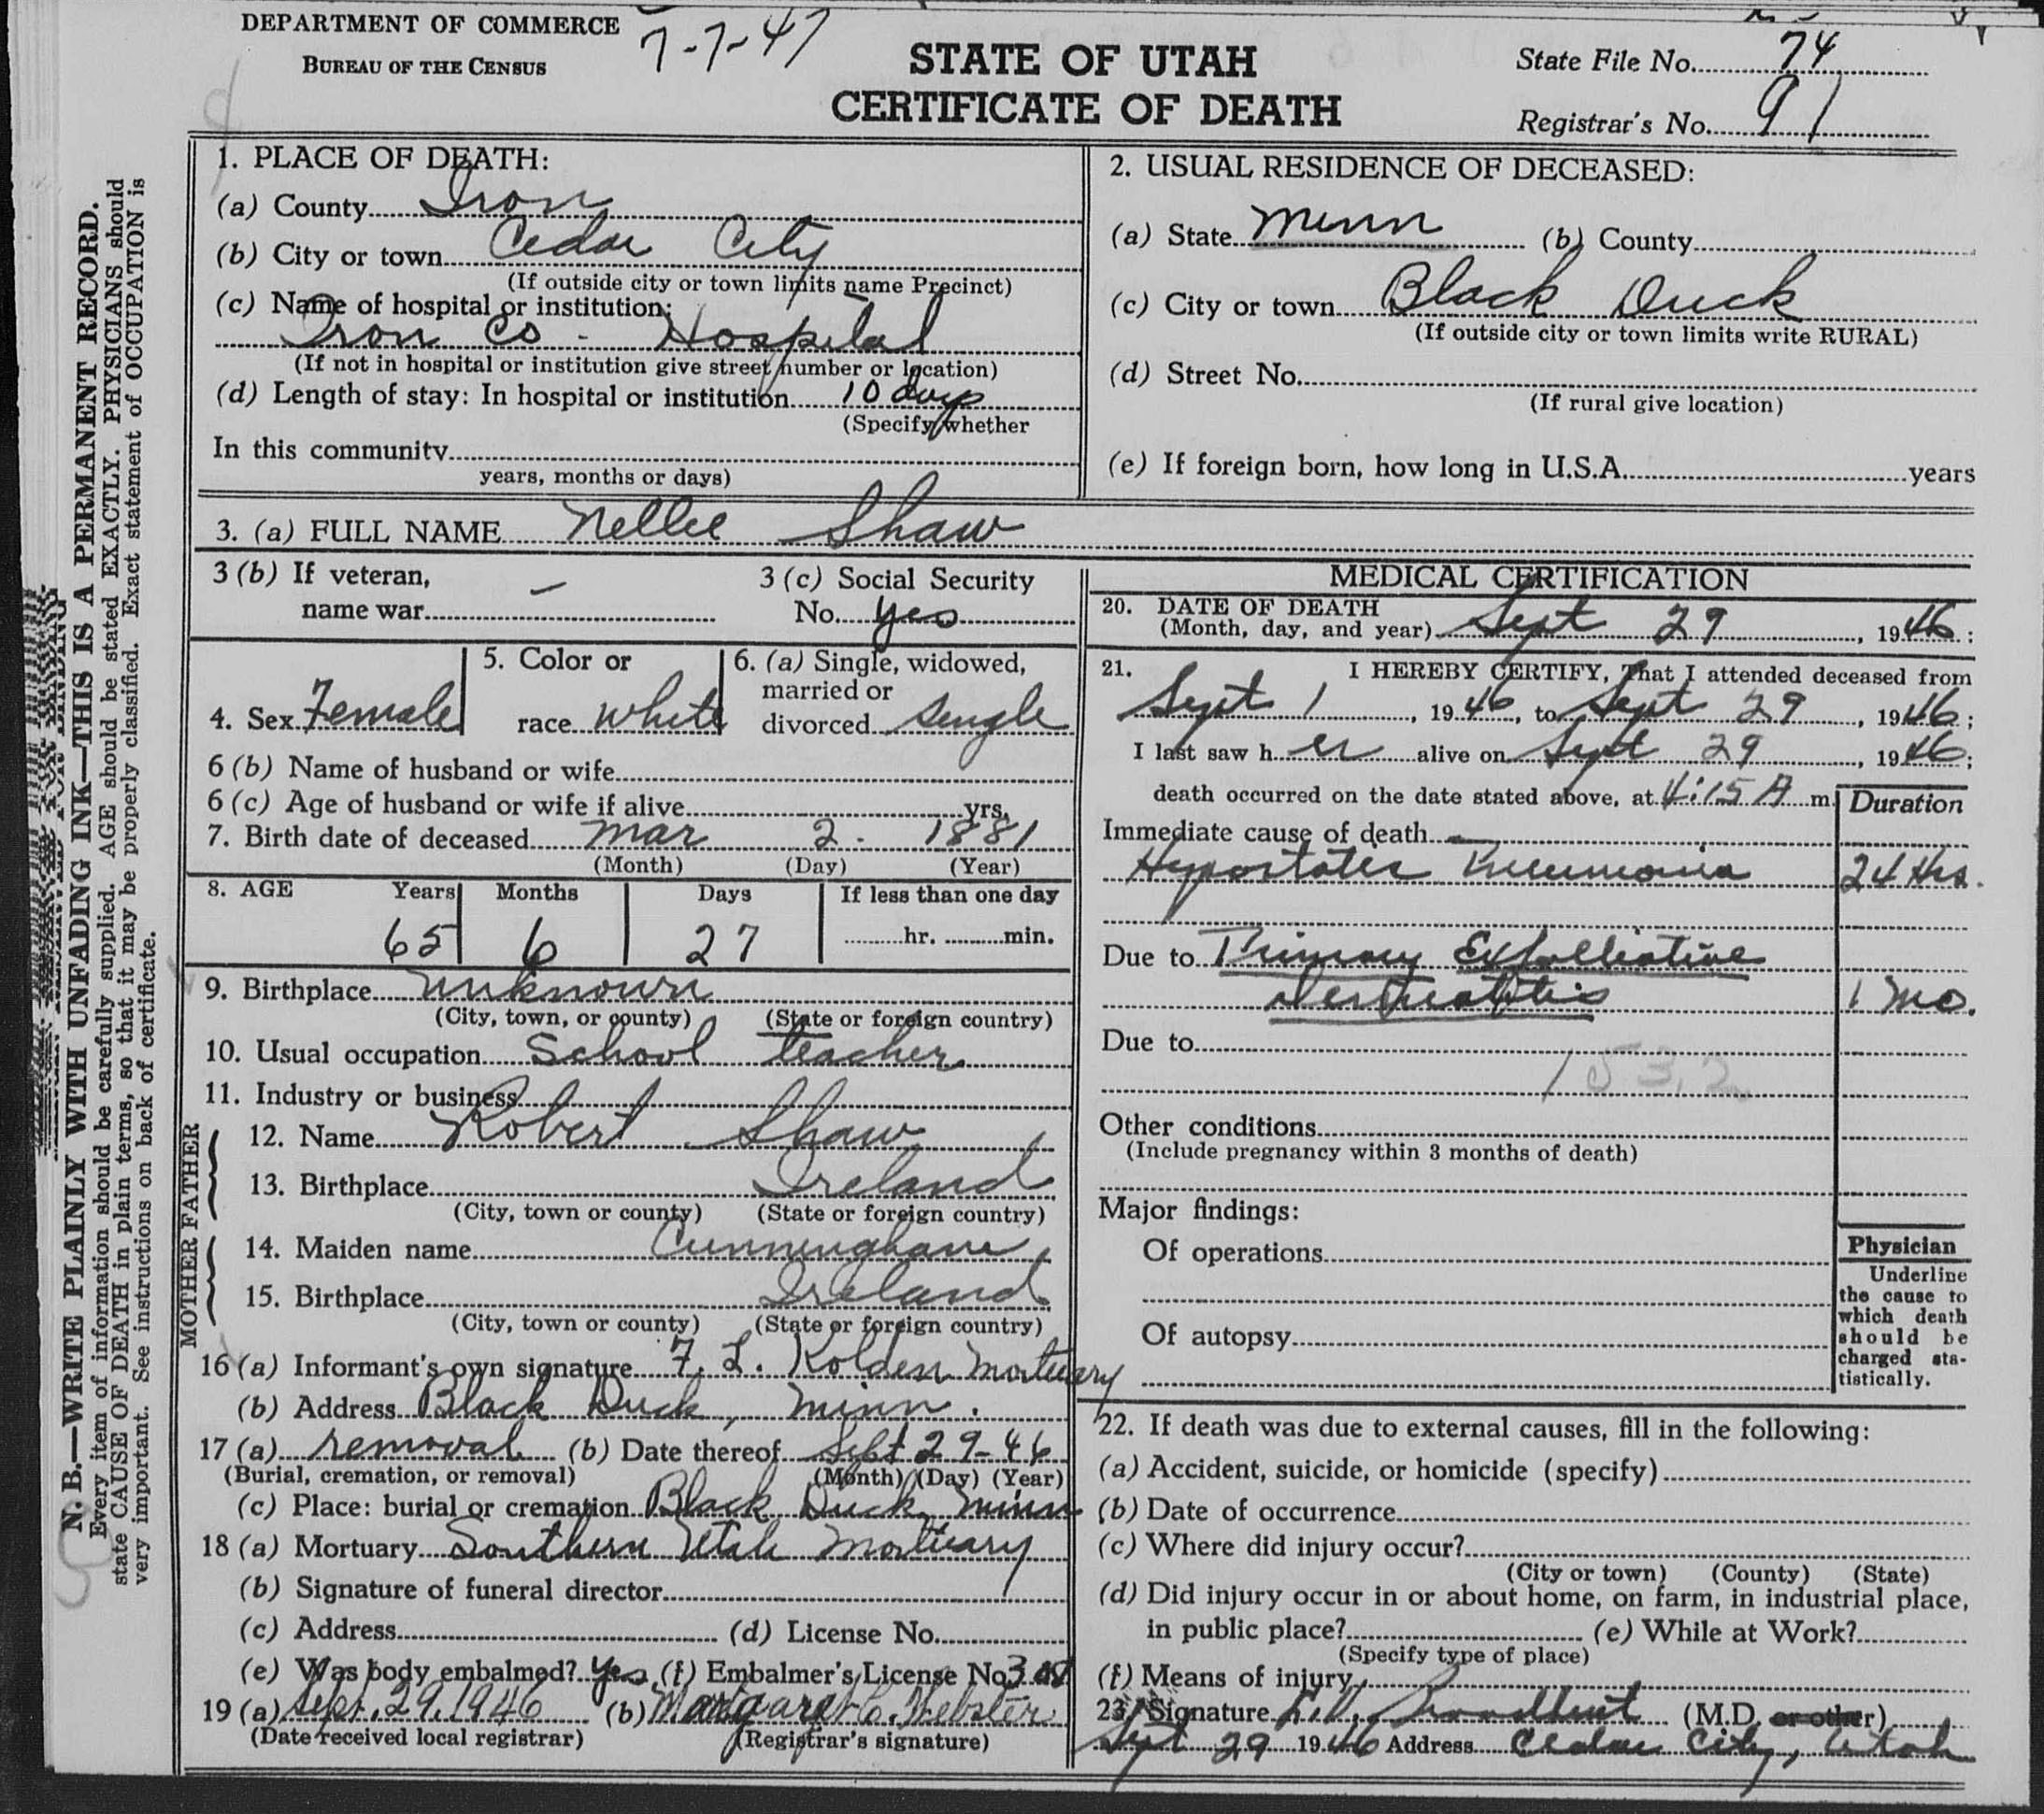 DEPARTMENT OF COMMERCE
BUREAU OF THE CENSUS
7-7-47
STATE OF UTAH
CERTIFICATE OF DEATH
State File No. 74
Registrar's No. 91
N. B.—WRITE PLAINLY WITH UNFADING INK—THIS IS A PERMANENT RECORD.
Every item of information should be carefully supplied. AGE should be stated EXACTLY. PHYSICIANS should
state CAUSE OF DEATH in plain terms, so that it may be properly classified. Exact statement of OCCUPATION is
very important. See instructions on back of certificate.
1. PLACE OF DEATH:
(a) County Iron
(b) City or town Cedar City
(If outside city or town limits name Precinct)
(c) Name of hospital or institution:
Iron Co - Hospital
(If not in hospital or institution give street number or location)
(d) Length of stay: In hospital or institution 10 days
(Specify whether
In this community
years, months or days)
2. USUAL RESIDENCE OF DECEASED:
(a) State Minn (b) County
(c) City or town Black Duck
(If outside city or town limits write RURAL)
(d) Street No.
(If rural give location)
(e) If foreign born, how long in U.S.A. years
3. (a) FULL NAME Nellie Shaw
3 (b) If veteran,
name war —
3 (c) Social Security
No. yes
4. Sex Female
5. Color or
race White
6. (a) Single, widowed,
married or
divorced Single
6 (b) Name of husband or wife
6 (c) Age of husband or wife if alive yrs.
7. Birth date of deceased Mar 2 - 1881
(Month) (Day) (Year)
8. AGE Years Months Days If less than one day
65 6 27 hr. min.
9. Birthplace Unknown
(City, town, or county) (State or foreign country)
10. Usual occupation School teacher
11. Industry or business
FATHER
12. Name Robert Shaw
13. Birthplace Ireland
(City, town or county) (State or foreign country)
MOTHER
14. Maiden name Cunninghame
15. Birthplace Ireland
(City, town or county) (State or foreign country)
16 (a) Informant's own signature F. L. Kolden Mortuary
(b) Address Black Duck, Minn.
17 (a) removal (b) Date thereof Sept 29-46
(Burial, cremation, or removal) (Month) (Day) (Year)
(c) Place: burial or cremation Black Duck, Minn
18 (a) Mortuary Southern Utah Mortuary
(b) Signature of funeral director
(c) Address (d) License No.
(e) Was body embalmed? Yes (f) Embalmer's License No.
19 (a) Sept. 29, 1946 (b) Margaret C. Webster
(Date received local registrar) (Registrar's signature)
MEDICAL CERTIFICATION
20. DATE OF DEATH
(Month, day, and year) Sept 29, 1946;
21. I HEREBY CERTIFY, That I attended deceased from
Sept 1, 1946, to Sept 29, 1946;
I last saw her alive on Sept 29, 1946;
death occurred on the date stated above, at 4:15 A m.
Duration
Immediate cause of death —
Hypostatic Pneumonia 24 Hrs.
Due to Primary Exfolliative
Dermatitis 1 Mo.
Due to
153.2
Other conditions
(Include pregnancy within 3 months of death)
Major findings:
Of operations
Of autopsy
Physician
Underline
the cause to
which death
should be
charged sta-
tistically.
22. If death was due to external causes, fill in the following:
(a) Accident, suicide, or homicide (specify)
(b) Date of occurrence
(c) Where did injury occur?
(City or town) (County) (State)
(d) Did injury occur in or about home, on farm, in industrial place,
in public place? (e) While at Work?
(Specify type of place)
(f) Means of injury
23. Signature Broadbent (M.D. or other)
Sept 29 1946 Address Cedar City, Utah